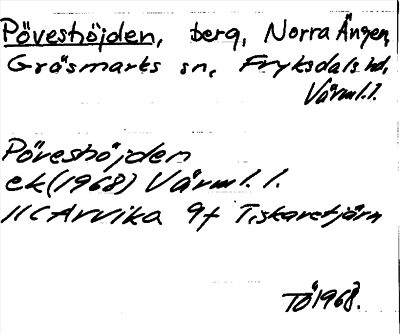 Pöveshöjden, berg, Norra Ängen,
Gräsmarks sn, Fryksdals hd,
Värml.l.
Pöveshöjden
ek (1968) Värml. l.
11C Arvika 9f Tiskaretjärn
TÖ 1968.